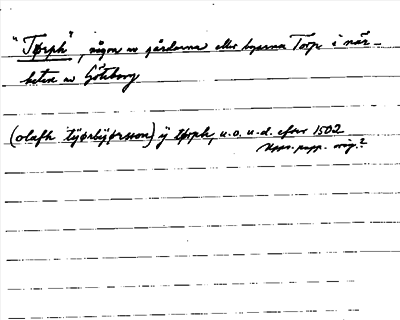 "Tørph", någon av gårdarna eller byarna Torp i när-
heten av Göteborg
(olafh týørbýørsson) ý tørph, u.o. u.d. efter 1502
papp. orig.?